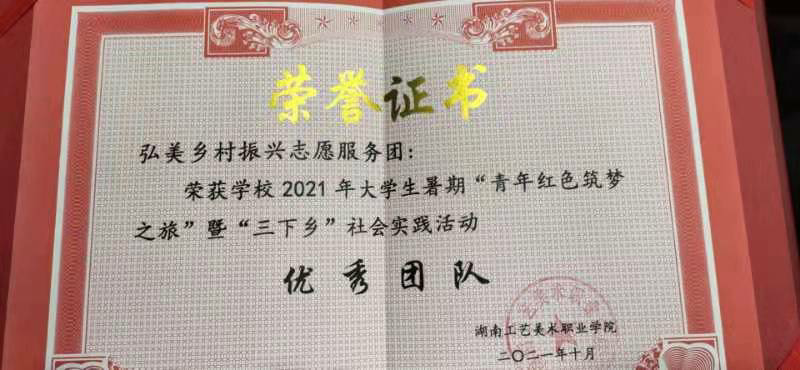 荣誉证书
弘美乡村振兴志愿服务团：
荣获学校2021年大学生暑期“青年红色筑梦
之旅”暨“三下乡”社会实践活动
优秀团队
湖南工艺美术职业学院
二〇二一年十月